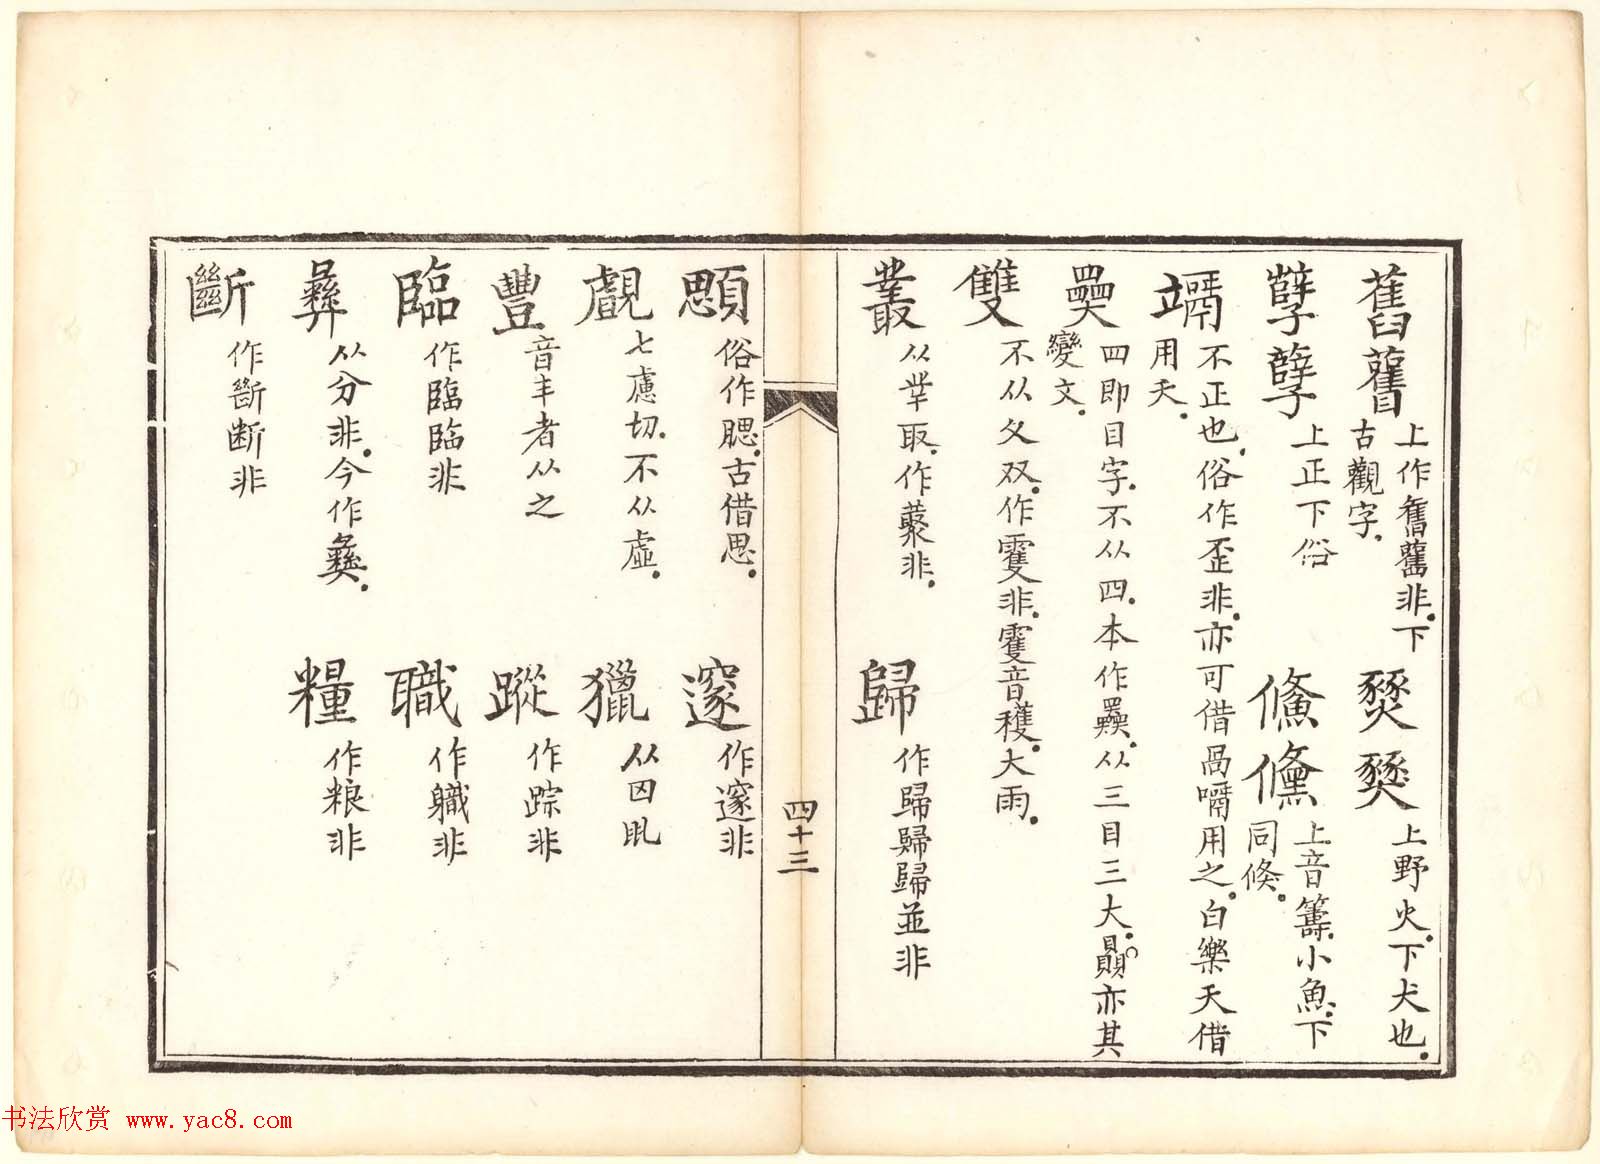 舊 𦾔 上作舊舊非。下
古觀字。
燹 上野火。下犬也。
孼 孽 上正下俗
鯈 儵 上音籌。小魚。下
同倏。
不正也。俗作歪非。亦可借咼喎用之。白樂天借
用夭。
四即目字。不从四。本作㚁。从三目三大。贔亦其
變文。
雙 不从文双。作䨥非。䨥音穫。大雨。
叢 从丵取。作藂非。
歸 作歸歸歸並非
四十三
顋 俗作腮。古借思。
邃 作邃非
覷 七慮切。不从虛。
獵 从囟
豐 音丰者从之
蹤 作踪非
臨 作臨臨非
職 作軄非
彝 从分非。今作彝。
糧 作粮非
斷 作㫁断非
书法欣赏 www.yac8.com